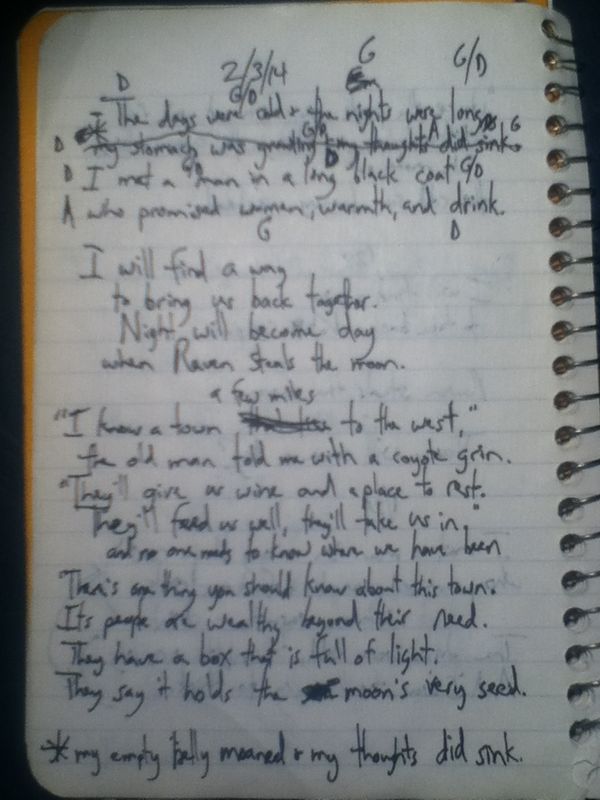 D 2/3/14 G G/D
G/D
The days were cold + the nights were long
G/D A G
D my stomach was growling + my thoughts did sink.
D G/D D G/D
I met a man in a long black coat
A who promised women, warmth, and drink.
G D
I will find a way
to bring us back together.
Night will become day
when Raven steals the moon.
a few miles
"I know a town to the west,"
the old man told me with a coyote grin.
"They'll give us wine and a place to rest.
They'll feed us well, they'll take us in."
and no one needs to know where we have been
"There's one thing you should know about this town.
Its people are wealthy beyond their need.
They have a box that is full of light.
They say it holds the moon's very seed.
* my empty belly moaned + my thoughts did sink.